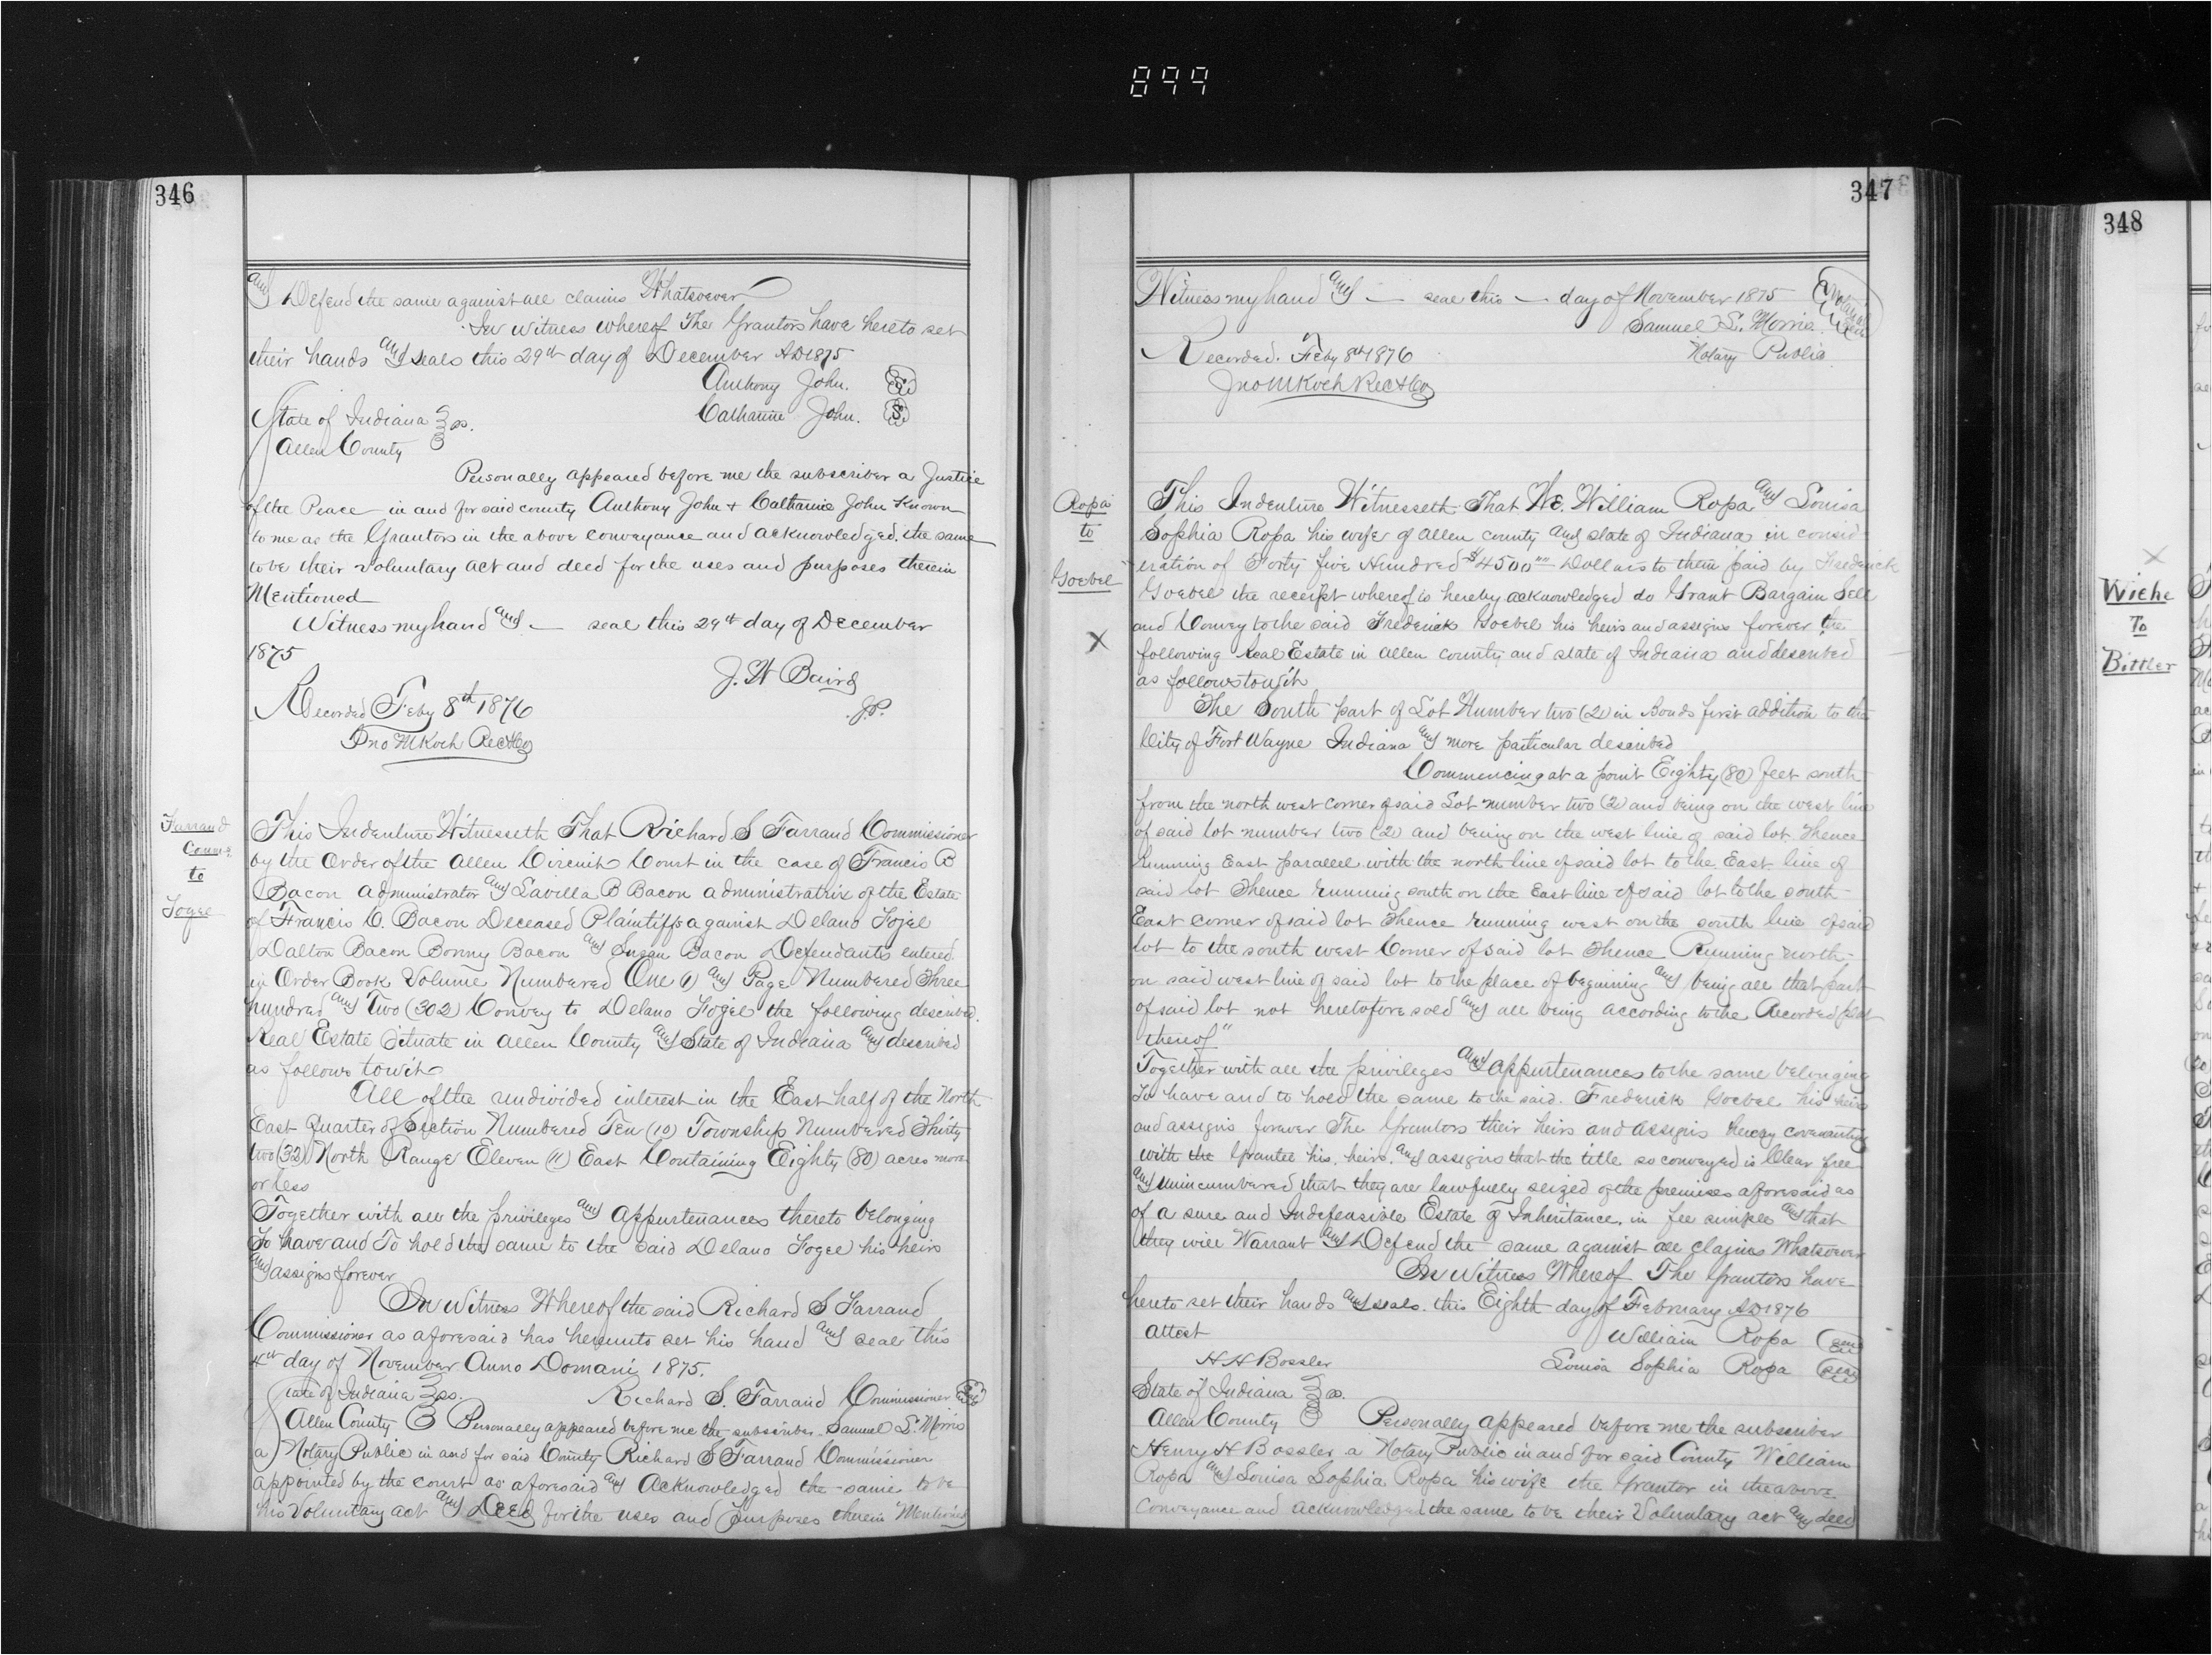 899
346
and Defend the same against all claims Whatsoever
In witness whereof The Grantors have hereto set
their hands and seals this 29th day of December AD 1875
Anthony John. S.
Catharine John. S.
State of Indiana ss.
Allen County
Personally appeared before me the subscriber a Justice
of the Peace in and for said county Anthony John + Catharine John Known
to me as the Grantors in the above conveyance and acknowledged. the same
to be their voluntary act and deed for the uses and purposes therein
Mentioned
Witness my hand and — seal this 29th day of December
1875
J. W Baird
J.P.
Recorded Feby 8th 1876
Jno M Koch Rec A Co
Farrand
Comr.
to
Fogel
This Indenture Witnesseth That Richard S Farrand Commissioner
by the Order of the Allen Circuit Court in the case of Francis B
Bacon administrator and Savilla B Bacon administratrix of the Estate
of Francis D. Bacon Deceased Plaintiffs against Delano Fogel
Dalton Bacon Bonny Bacon and Susan Bacon Defendants entered
in Order Book Volume Numbered One (1) and Page Numbered Three
hundred and Two (302) Convey to Delano Fogel the following described
Real Estate Situate in Allen County and State of Indiana and described
as follows towit
All of the undivided interest in the East half of the North
East Quarter of Section Numbered Ten (10) Township Numbered Thirty
two (32) North Range Eleven (11) East Containing Eighty (80) acres more
or less
Together with all the privileges and appurtenances thereto belonging
To have and To hold the same to the said Delano Fogel his heirs
and assigns forever
In Witness Whereof the said Richard S Farrand
Commissioner as aforesaid has hereunto set his hand and seal this
4th day of November Anno Domani 1875.
State of Indiana ss. Richard S. Farrand Commissioner
Allen County Personally appeared before me the subscriber Samuel L. Morris
a Notary Public in and for said County Richard S Farrand Commissioner
appointed by the court as aforesaid and Acknowledged the same to be
his Voluntary act and Deed for the uses and Purposes therein Mentioned
347
Witness my hand and — seal this — day of November 1875
Samuel L. Morris
Notary Public
Recorded. Feby 8th 1876
Jno M Koch Rec A Co
Ropa
to
Goebel
X
This Indenture Witnesseth That We. William Ropa and Louisa
Sophia Ropa his wife of Allen county and state of Indiana in consid
eration of Forty five Hundred $4500 Dollars to them paid by Frederick
Goebel the receipt whereof is hereby acknowledged do Grant Bargain Sell
and Convey to the said Frederick Goebel his heirs and assigns forever the
following Real Estate in Allen county and state of Indiana and described
as follows towit
The South part of Lot Number two (2) in Bonds first addition to the
City of Fort Wayne Indiana and more particular described
Commencing at a point Eighty (80) feet south
from the north west corner of said Lot number two (2) and being on the west line
of said lot number two (2) and being on the west line of said lot. Thence
Running East parallel with the north line of said lot to the East line of
said lot Thence running south on the East line of said lot to the south
East corner of said lot Thence running west on the south line of said
lot to the south west Corner of said lot Thence Running north
on said west line of said lot to the place of beginning and being all that part
of said lot not heretofore sold and all being according to the Recorded plat
thereof"
Together with all the privileges and appurtenances to the same belonging
To have and to hold the same to the said. Frederick Goebel his heirs
and assigns forever The Grantors their heirs and assigns hereby covenanting
with the Grantee his. heirs. and assigns that the title so conveyed is Clear free
and unincumbered that they are lawfully seized of the premises aforesaid as
of a sure and Indefeasible Estate of Inheritance. in fee simple and that
they will Warrant and Defend the same against all claims Whatsoever
In Witness Whereof The Grantors have
hereto set their hands and seals. this Eighth day of February AD 1876
attest William Ropa seal
H H Bossler Louisa Sophia Ropa seal
State of Indiana ss.
Allen County Personally appeared before me the subscriber
Henry H Bossler a Notary Public in and for said County William
Ropa and Louisa Sophia Ropa his wife the Grantor in the above
Conveyance and acknowledged the same to be their Voluntary act and deed
348
X
Wiehe
To
Bittler